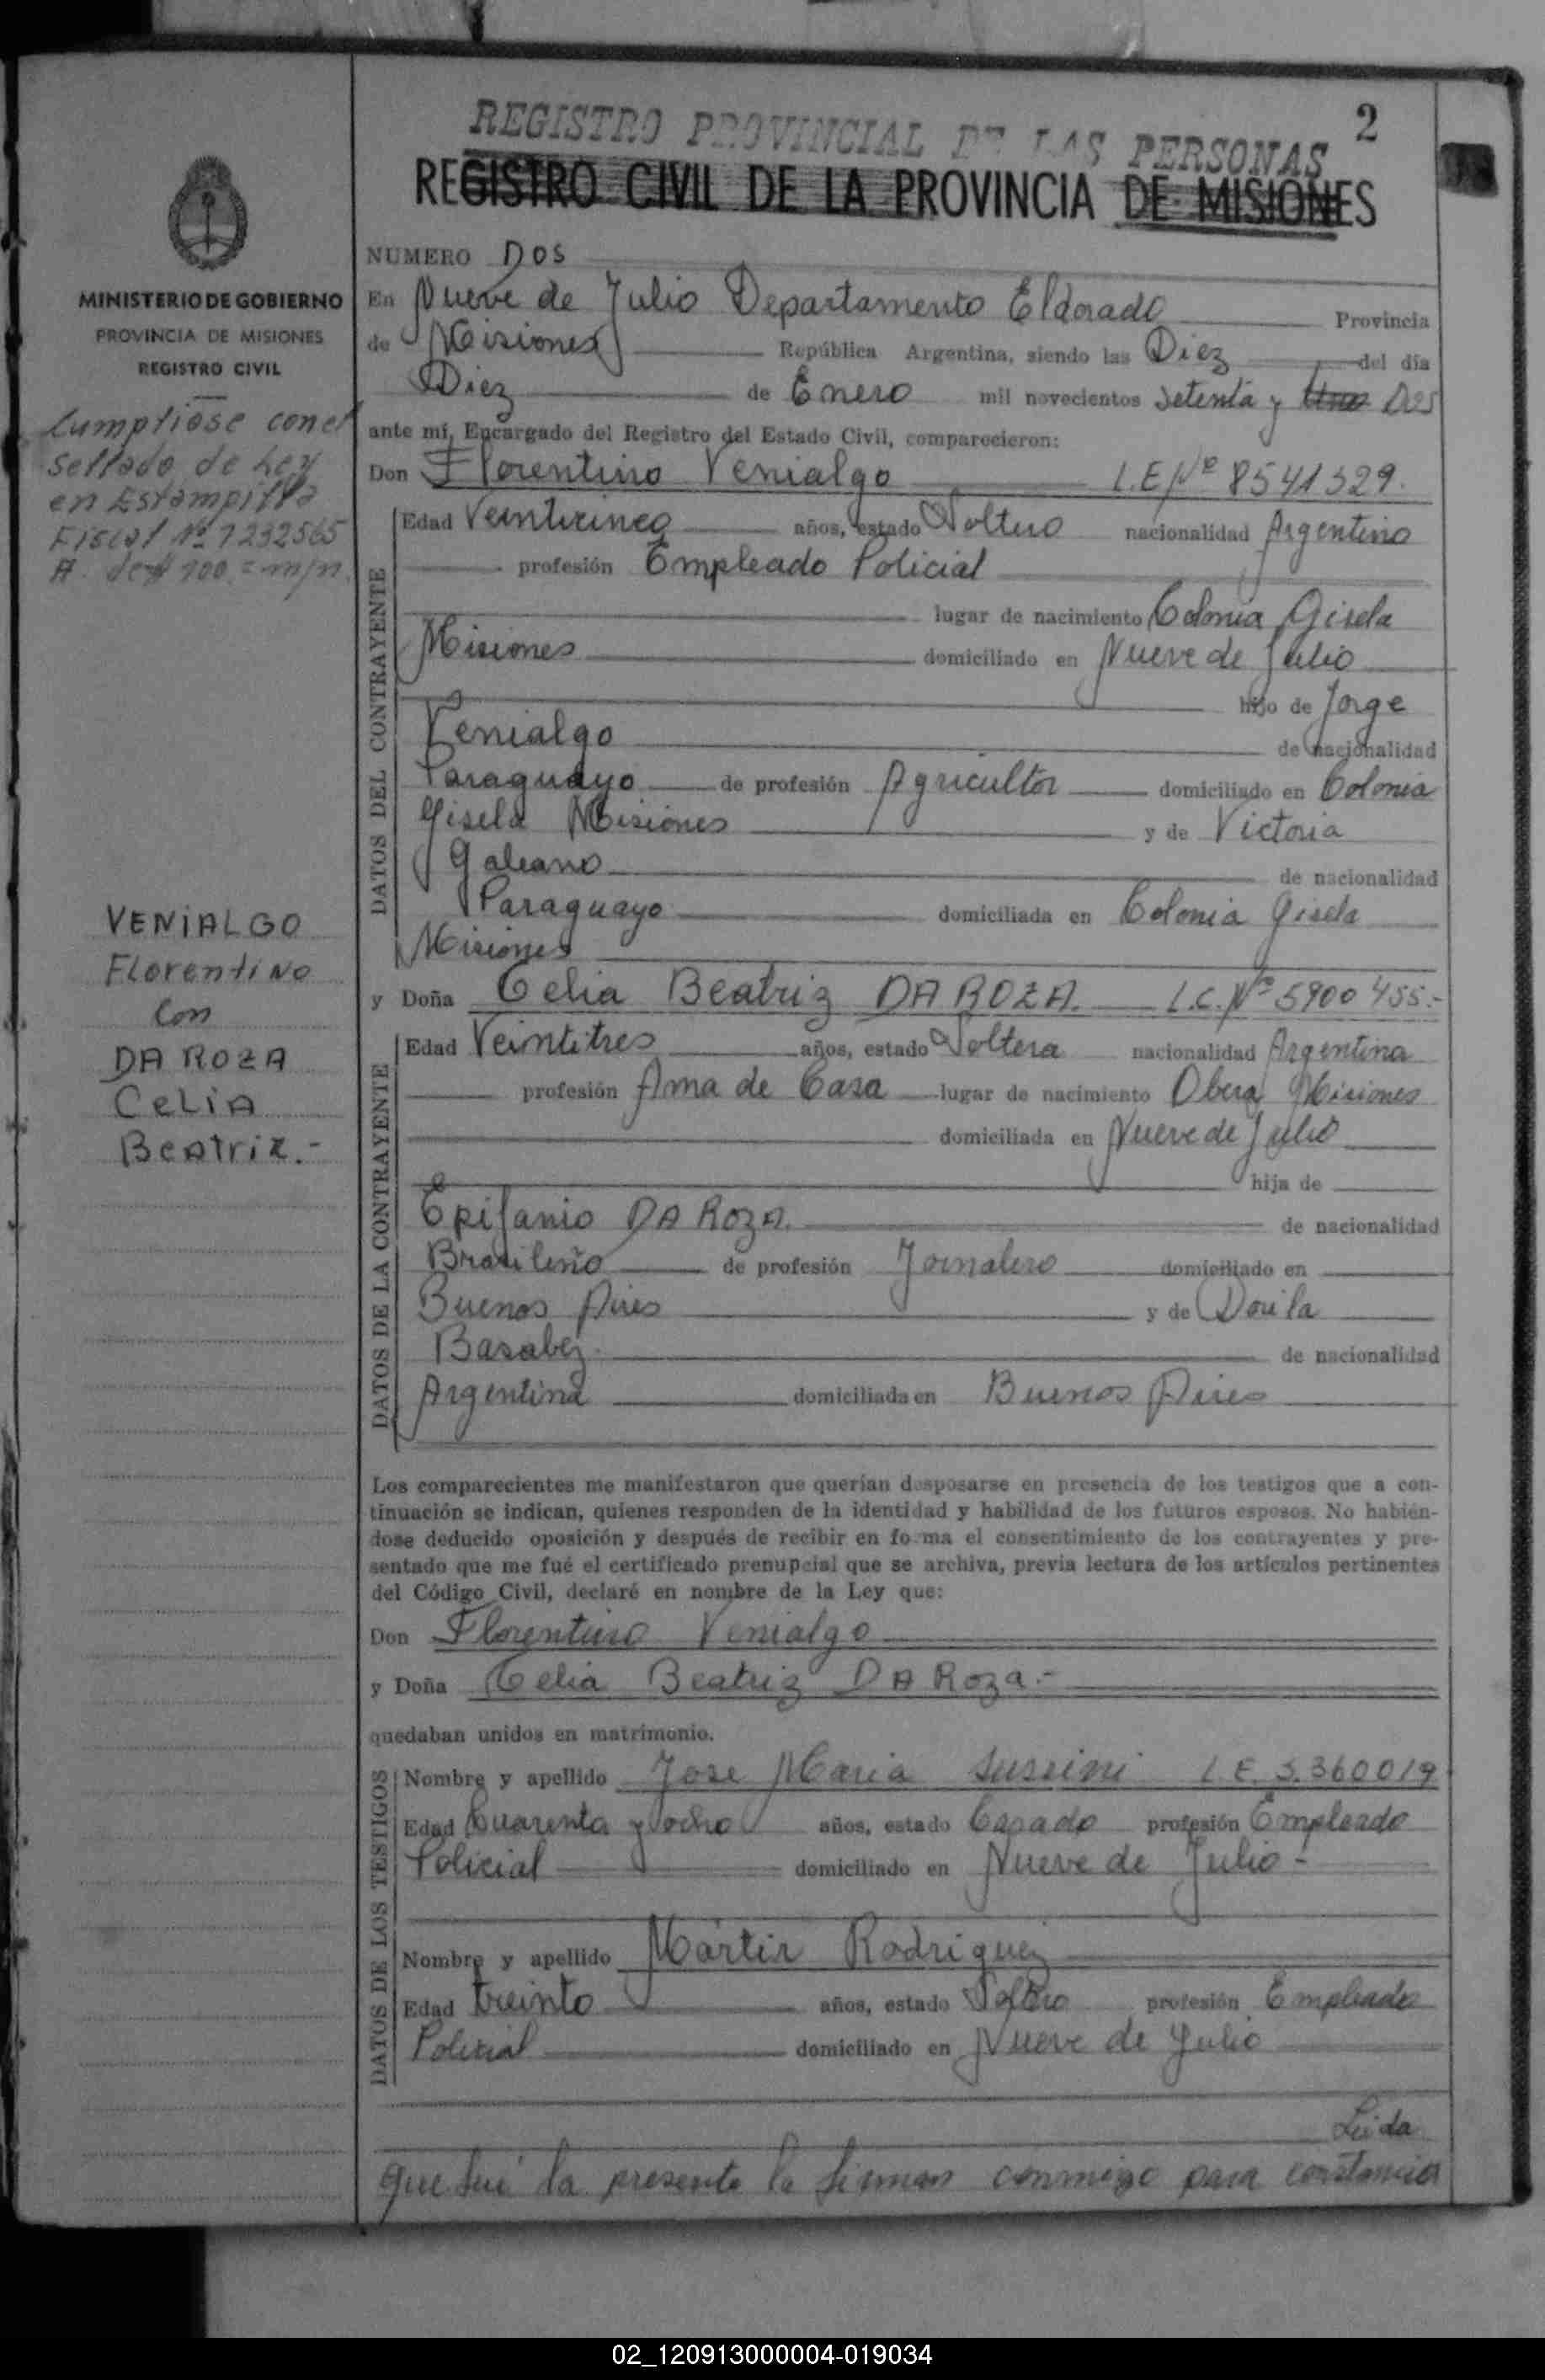 2
REGISTRO PROVINCIAL DE LAS PERSONAS
REGISTRO CIVIL DE LA PROVINCIA DE MISIONES
MINISTERIO DE GOBIERNO
PROVINCIA DE MISIONES
REGISTRO CIVIL
Cumpliose con el
sellado de Ley
en Estampilla
Fiscal Nº 7232565
A. de $ 900.= m/n.
VENIALGO
Florentino
Con
DA ROZA
CELIA
Beatriz.-
NUMERO Dos
En Nueve de Julio Departamento Eldorado Provincia
de Misiones República Argentina, siendo las Diez del día
Diez de Enero mil novecientos setenta y Uno Dos
ante mí, Encargado del Registro del Estado Civil, comparecieron:
Don Florentino Venialgo L.E Nº 8541329.
DATOS DEL CONTRAYENTE
Edad Veinticinco años, estado Soltero nacionalidad Argentino
profesión Empleado Policial
lugar de nacimiento Colonia Gisela
Misiones domiciliado en Nueve de Julio
hijo de Jorge
Venialgo de nacionalidad
Paraguayo de profesión Agricultor domiciliado en Colonia
Gisela Misiones y de Victoria
Galeano de nacionalidad
Paraguayo domiciliada en Colonia Gisela
Misiones
y Doña Celia Beatriz DA ROZA. L.C. Nº 5900455.-
DATOS DE LA CONTRAYENTE
Edad Veintitres años, estado Soltera nacionalidad Argentina
profesión Ama de Casa lugar de nacimiento Obera Misiones
domiciliada en Nueve de Julio
hija de
Epifanio DA ROZA. de nacionalidad
Brasileño de profesión Jornalero domiciliado en
Buenos Aires y de Dorila
Basabez. de nacionalidad
Argentina domiciliada en Buenos Aires
Los comparecientes me manifestaron que querían desposarse en presencia de los testigos que a con-
tinuación se indican, quienes responden de la identidad y habilidad de los futuros esposos. No habién-
dose deducido oposición y después de recibir en forma el consentimiento de los contrayentes y pre-
sentado que me fué el certificado prenupcial que se archiva, previa lectura de los artículos pertinentes
del Código Civil, declaré en nombre de la Ley que:
Don Florentino Venialgo
y Doña Celia Beatriz DA Roza.-
quedaban unidos en matrimonio.
DATOS DE LOS TESTIGOS
Nombre y apellido Jose Maria Sussini L.E. 3.360019
Edad Cuarenta y ocho años, estado Casado profesión Empleado
Policial domiciliado en Nueve de Julio-
Nombre y apellido Martir Rodriguez
Edad treinta años, estado Soltero profesión Empleado
Policial domiciliado en Nueve de Julio
Leida
que fué la presente la firman conmigo para constancia
02_120913000004-019034